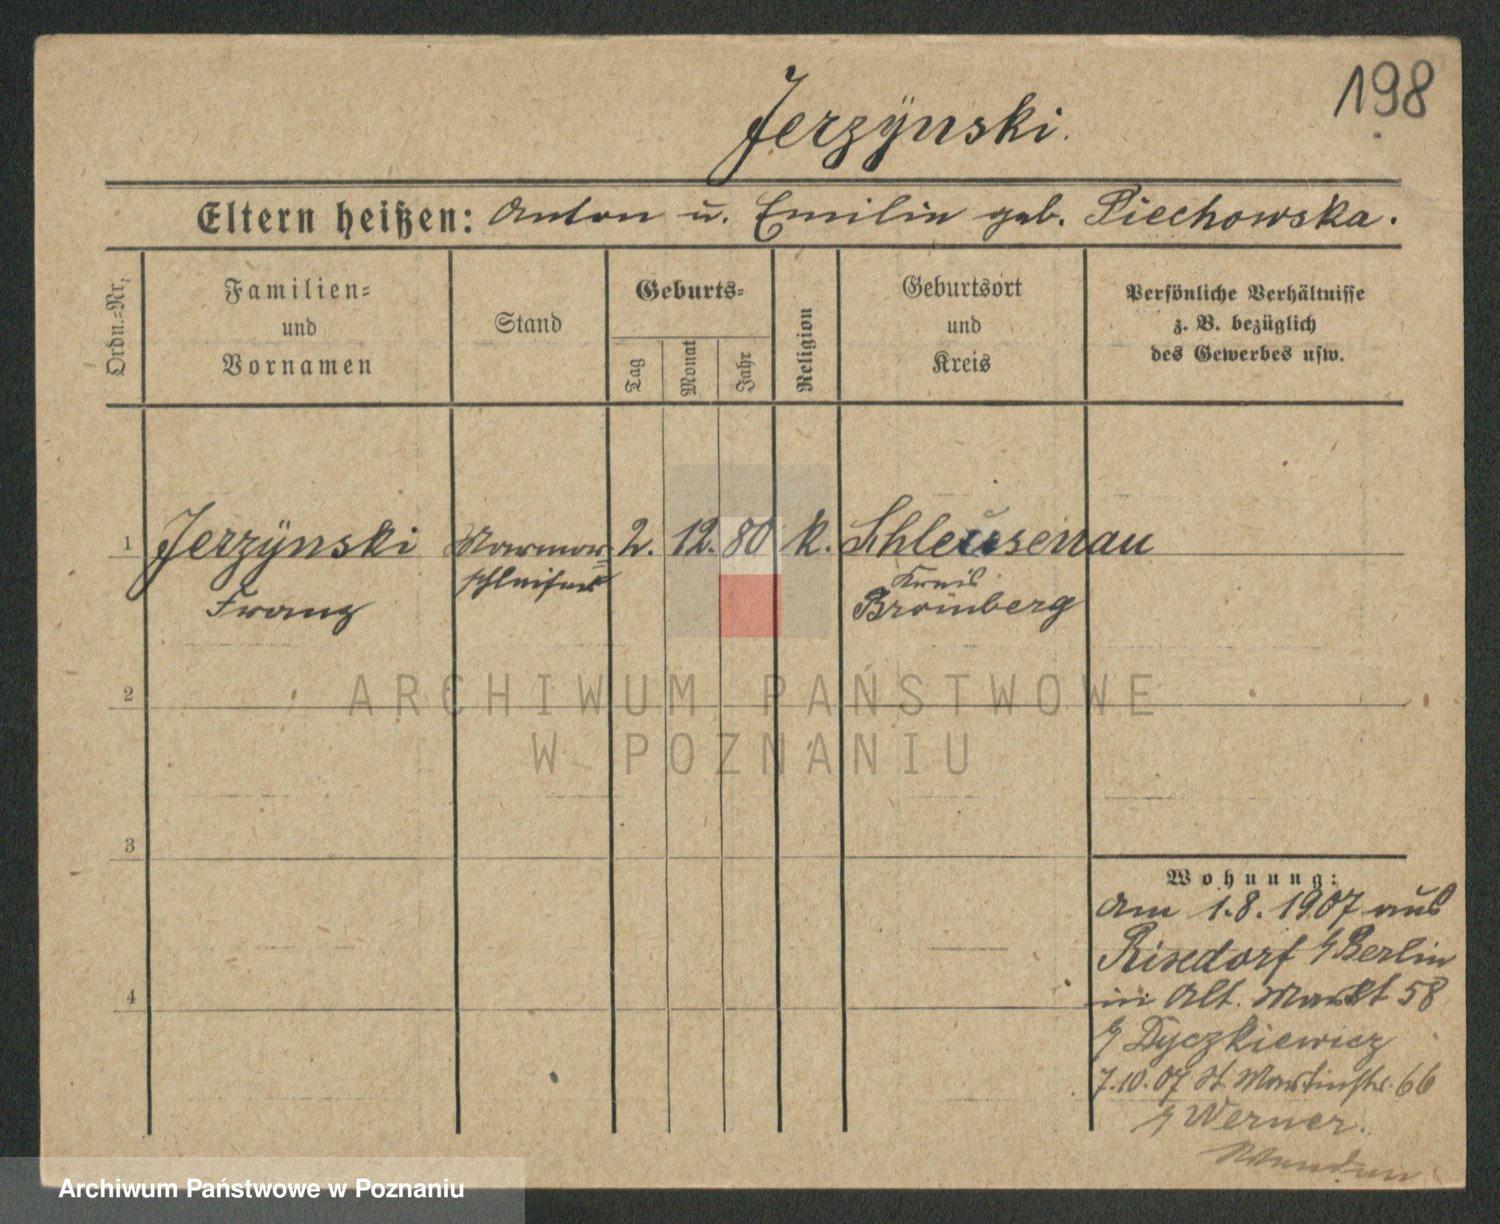 198
Jerzÿnski.
Eltern heißen: Anton u. Emilie geb. Piechowska.
Ordn.-Nr.
Familien- und Vornamen
Stand
Geburts-
Tag
Monat
Jahr
Religion
Geburtsort und Kreis
Persönliche Verhältnisse
z. B. bezüglich
des Gewerbes usw.
1 Jerzÿnski Marmor= 2. 12. 80 k. Schleusenau
schleifer Kreis
Franz Bromberg
2
ARCHIWUM PAŃSTWOWE
W POZNANIU
3
4
Wohnung:
Am 1.8.1907 aus
Rixdorf b/Berlin
in Alt. Markt 58
b/ Dyczkiewicz
7.10.07 St. Martinstr. 66
b/ Werner.
Archiwum Państwowe w Poznaniu